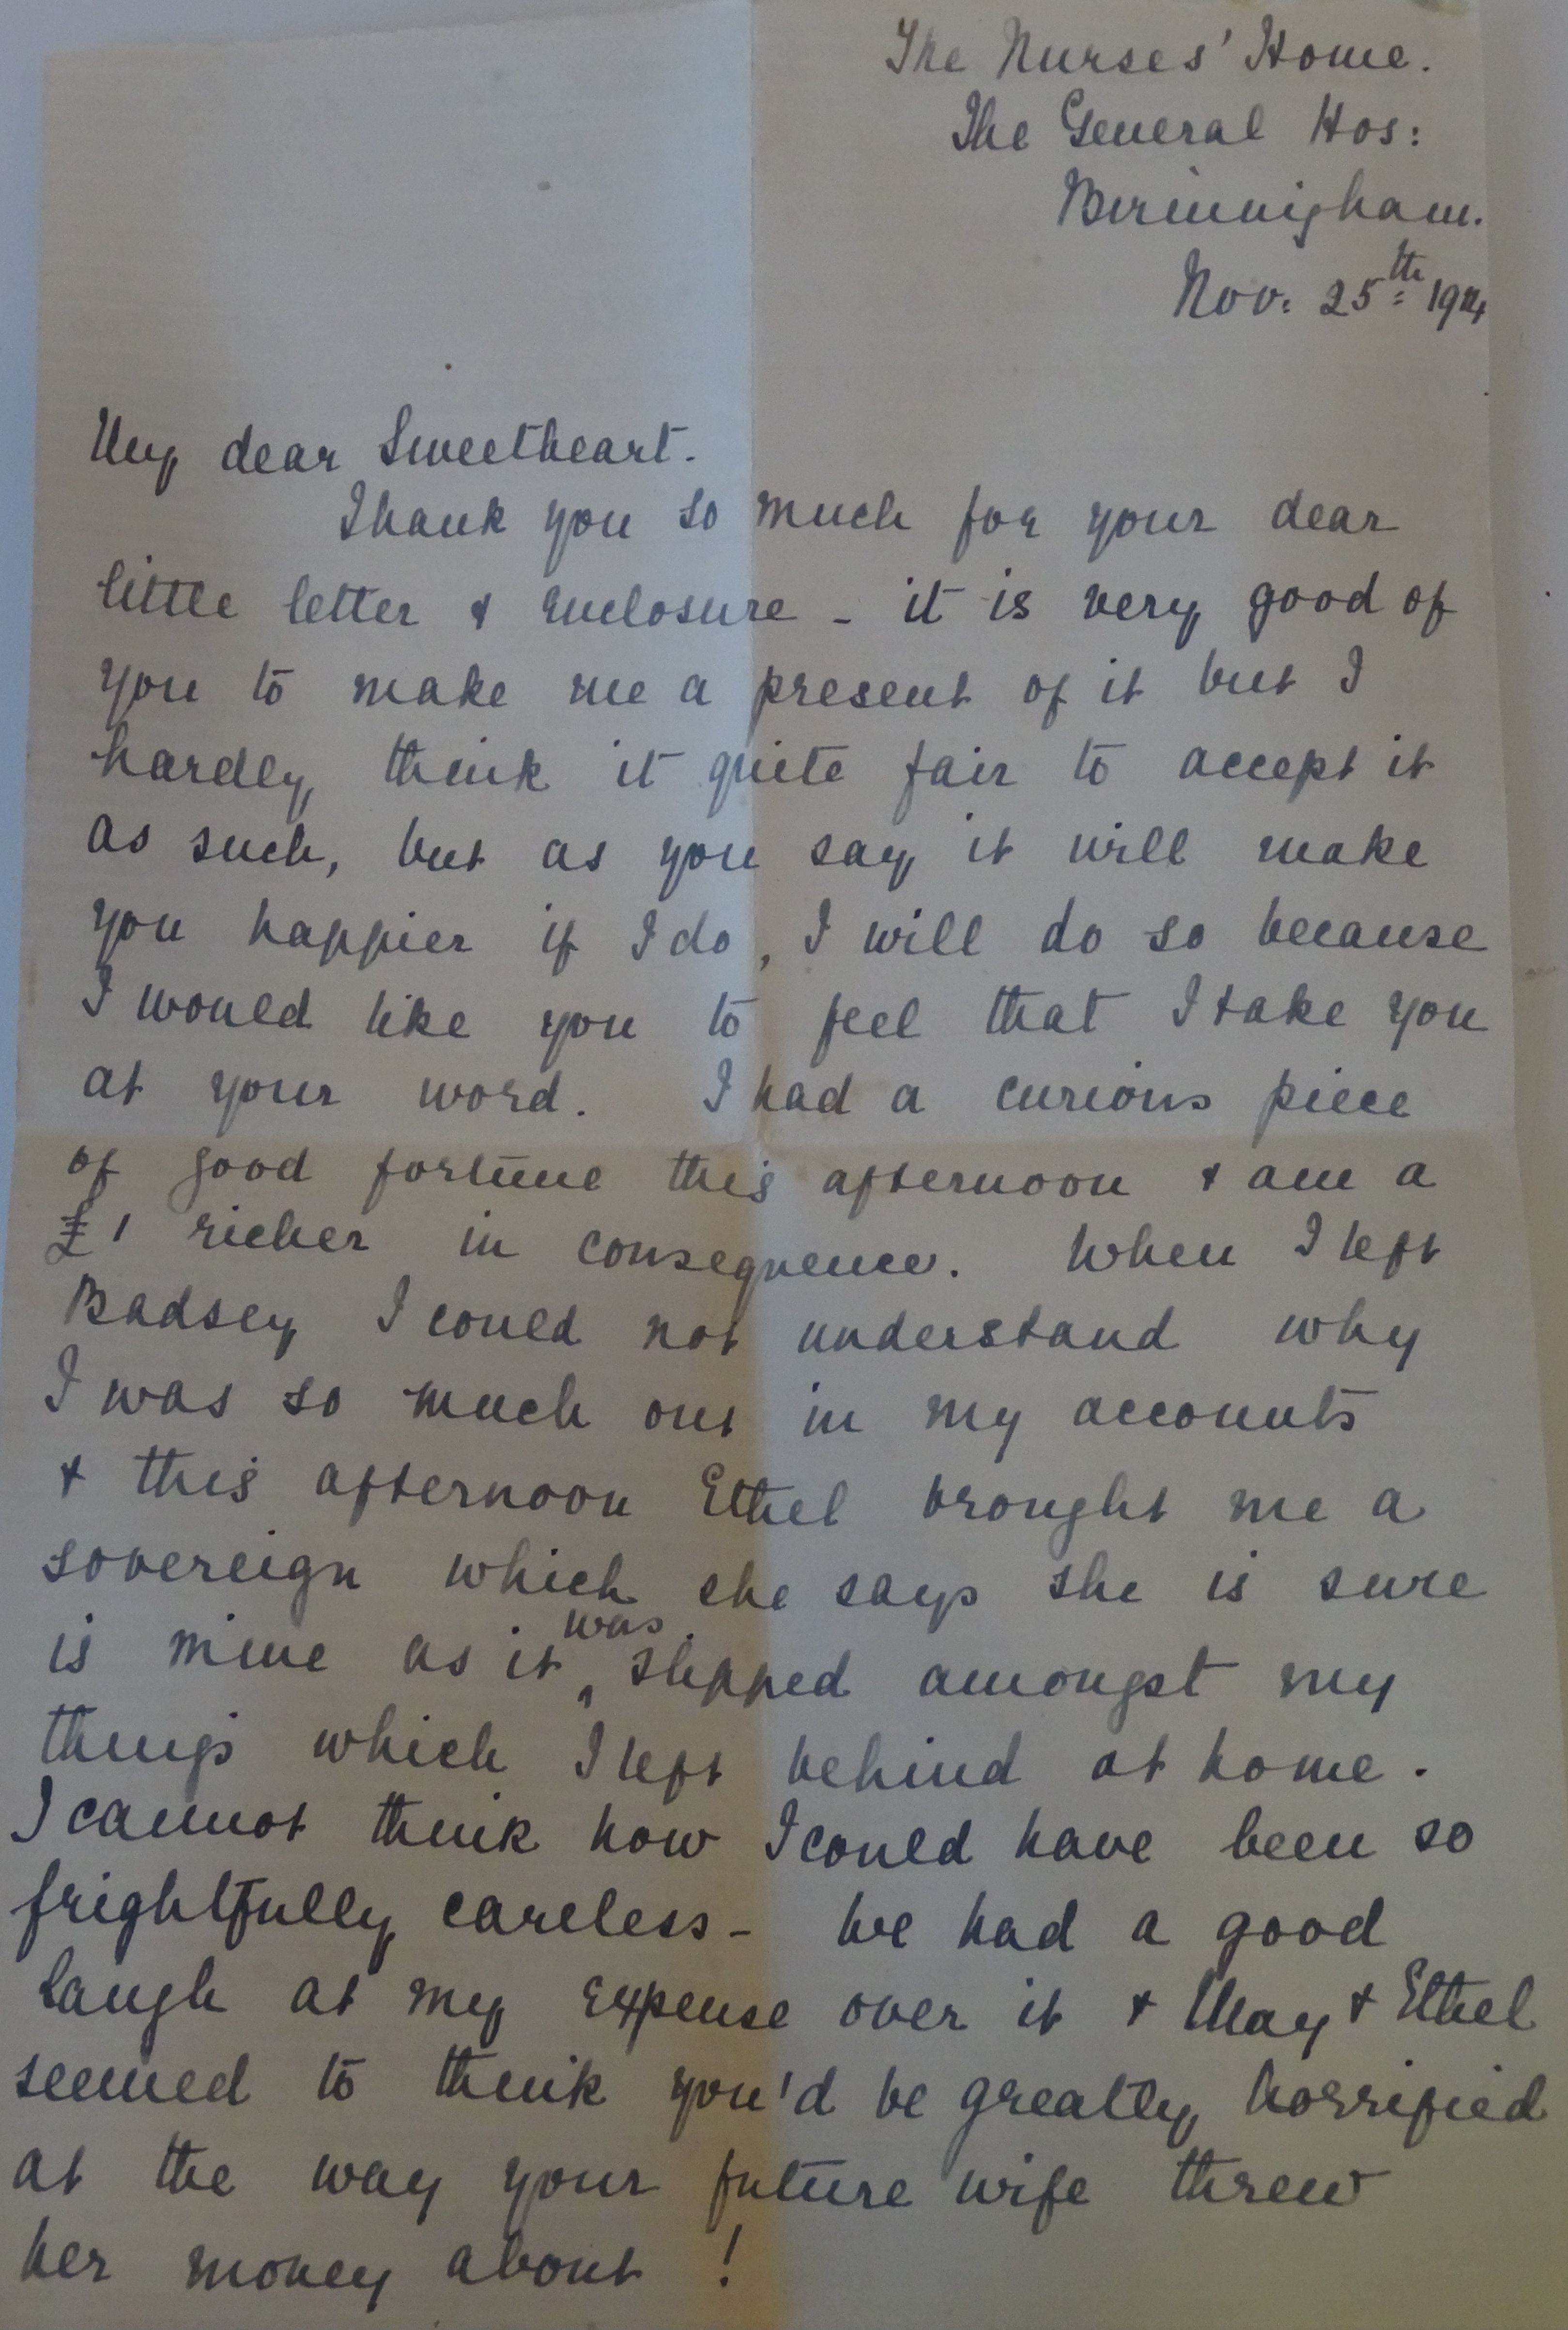 The Nurses' Home.
The General Hos:
Birmingham.
Nov: 25th 1914
My dear Sweetheart.
Thank you so much for your dear
little letter & enclosure - it is very good of
you to make me a present of it but I
hardly think it quite fair to accept it
as such, but as you say it will make
you happier if I do, I will do so because
I would like you to feel that I take you
at your word. I had a curious piece
of good fortune this afternoon & am a
£1 richer in consequence. When I left
Badsey I could not understand why
I was so much out in my accounts
& this afternoon Ethel brought me a
sovereign which she says she is sure
is mine as it was slipped amongst my
things which I left behind at home.
I cannot think how I could have been so
frightfully careless - We had a good
laugh at my expense over it & May & Ethel
seemed to think you'd be greatly horrified
at the way your future wife threw
her money about !